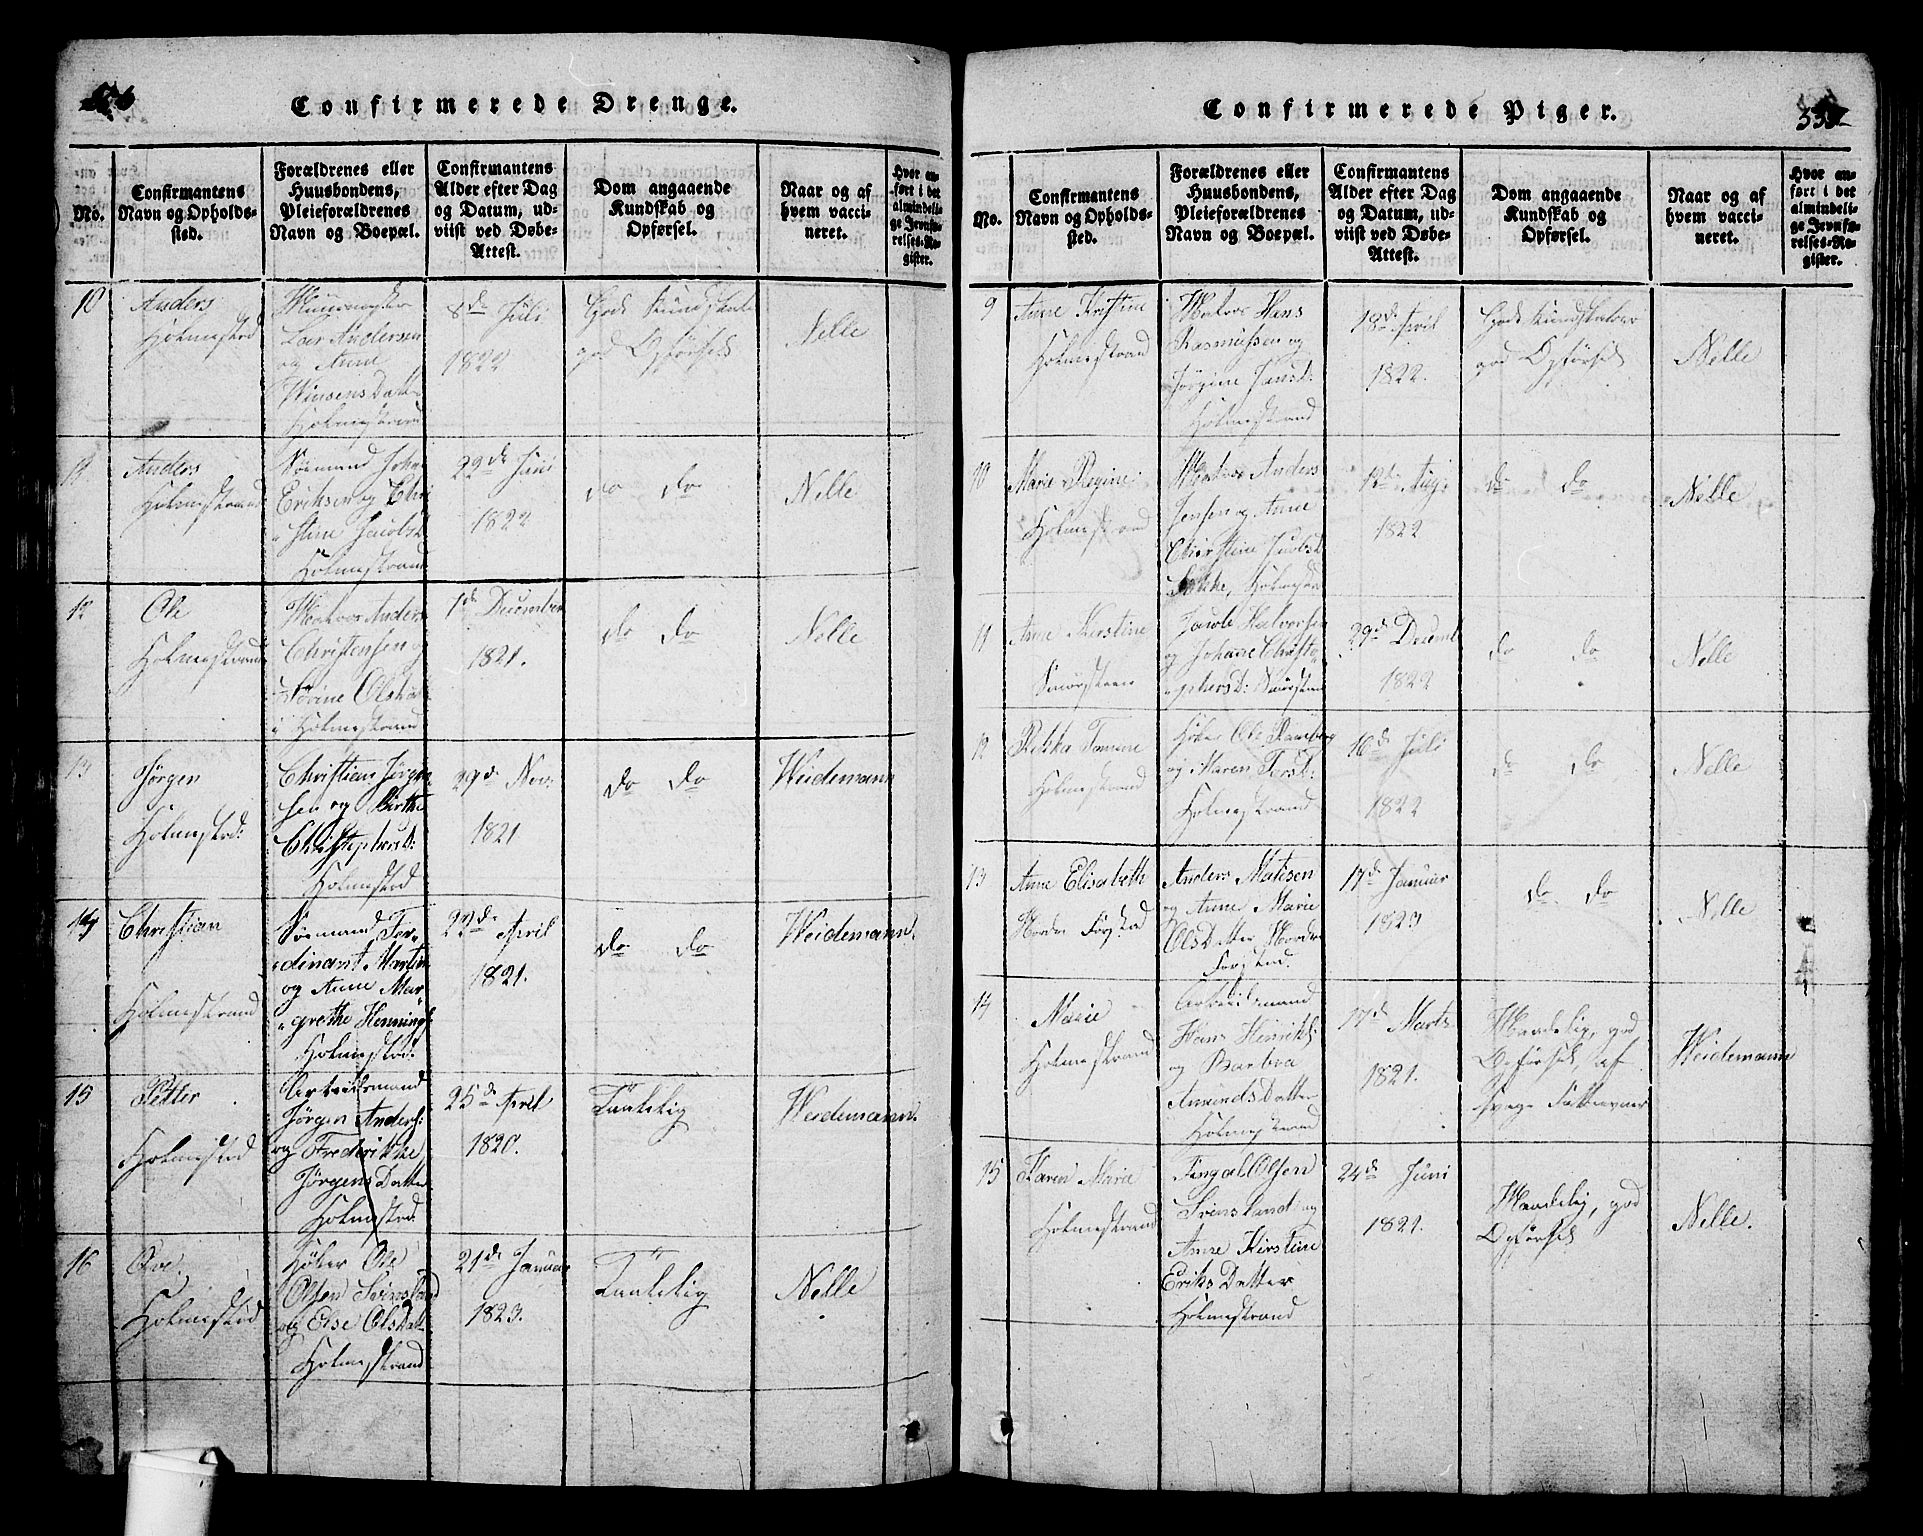 Confirmerede Drenge.
No.
Confirmantens
Navn og Opholds-
sted.
Forældrenes eller
Huusbondens,
Pleieforældrenes
Navn og Boepæl.
Confirmantens
Alder efter Dag
og Datum, ud-
viist ved Døbe-
Attest.
Dom angaaende
Kundskab og
Opførsel.
Naar og af
hvem vacci-
neret.
Hvor an-
ført i det
almindeli-
ge Jevnfø-
relses-Re-
gister.
10
Anders
Holmestrd
Lars Andersen
og Anne
Holmestrand
8de Juli
1822
Gode Kundskaber
god Opførsel
Nelle
11
Anders
Holmestrand
Sømand Johan
Eriksen og Chri
stine Jacobsd
Holmestrand
22de Juni
1822
do do
Nelle
12
Ole
Holmestrand
Matros Anders
Christensen og
Holmestrand
1de December
1821.
do do
Nelle
13
Jørgen
Holmestrd:
Christian Jørgen
sen og Birthe
ChristophersD:
Holmestrd
29de Nov:
1821
do do
Weidemann
14
Christian
Holmestrand
Sømand Fer-
dinant Martin
og Anne Mar
grethe Hennings
Holmestrd:
22de April
1821.
do do
Weidemann.
15
Petter
Holmestrd
Arbeidsmand
Jørgen Anders:
og Frederikke
JørgensDatter
Holmestrd:
25de April
1820.
Taalelig
Weidemann.
16
Ove.
Holmestrd
Høker Ole
Olsen Svinsland
og Else OlsDatt
Holmestrand
21de Januar
1823.
Taalelig
Nelle
Confirmerede Piger.
No.
Confirmantens
Navn og Opholds-
sted.
Forældrenes eller
Huusbondens,
Pleieforældrenes
Navn og Boepæl.
Confirmantens
Alder efter Dag
og Datum, ud-
viist ved Døbe-
Attest.
Dom angaaende
Kundskab og
Opførsel.
Naar og af
hvem vacci-
neret.
Hvor an-
ført i det
almindeli-
ge Jevnfø-
relses-Re-
gister.
9
Anne Kirstine
Holmestrand
Matros Hans
Rasmussen og
Jørgine Jansd:
Holmestrand
18de April
1822.
Gode Kundskaber
god Opførsel
Nelle
10
Marie Regine
Holmestrand
Matros Anders
Jensen og Anne
Christine Jacobsd
12de Aug:
1822
do do
Nelle
11
Anne Kirstine
Smørsteen
Jacob Halvorsen
og Johane Christo
phersd: Smørsteen
29de Decemb
1822
do do
Nelle
12
Holmestrand
Høker Ole
og Maren
Holmestrand
16de Juli
1822
do do
Nelle
13
Anne Elisabeth
Anders Matisen
og Anne Marie
OlsDatter Nordre
17de Januar
1823
do do
Nelle
14
Marie
Holmestrand
Arbeidsmand
Hans Henriks:
og Barbra
AmundsDatter
Holmestrand
17de Marts
1821.
Maadelig, god
Opførsel, af
svage Fatteevner
Weidemann
15
Karen Marie
Holmestrand
Fingal Olsen
Svinsland og
Anne Kirstine
Eriks Datter
Holmestrand
24de Juni
1821.
Maadelig, god
Opførsel
Nelle.